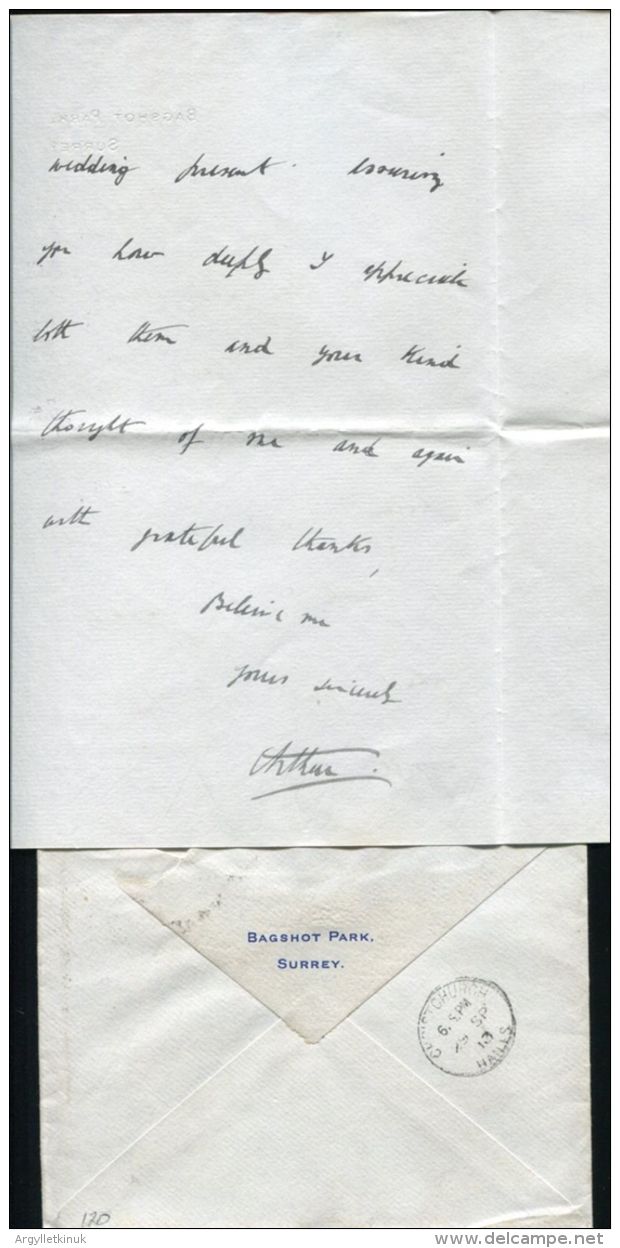 BAGSHOT PARK,
SURREY
wedding present. assuring
you how deeply I appreciate
both them and your kind
thought of me and again
with grateful thanks,
Believe me
yours sincerely
Arthur.
BAGSHOT PARK,
SURREY.
CHRISTCHURCH
6. PM
SP
13
HANTS
120
Argylletkinuk
www.delcampe.net